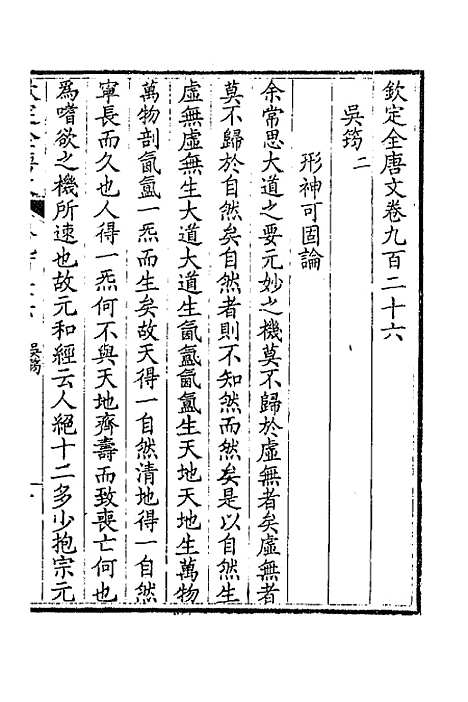 欽定全唐文卷九百二十六
吳筠二
形神可固論
余常思大道之要元妙之機莫不歸於虛無者矣虛無者
莫不歸於自然矣自然者則不知然而然矣是以自然生
虛無虛無生大道大道生氤氳氤氳生天地天地生萬物
萬物剖氤氳一炁而生矣故天得一自然清地得一自然
寧長而久也人得一炁何不與天地齊壽而致喪亡何也
為嗜欲之機所速也故元和經云人絕十二多少抱宗元
吳筠